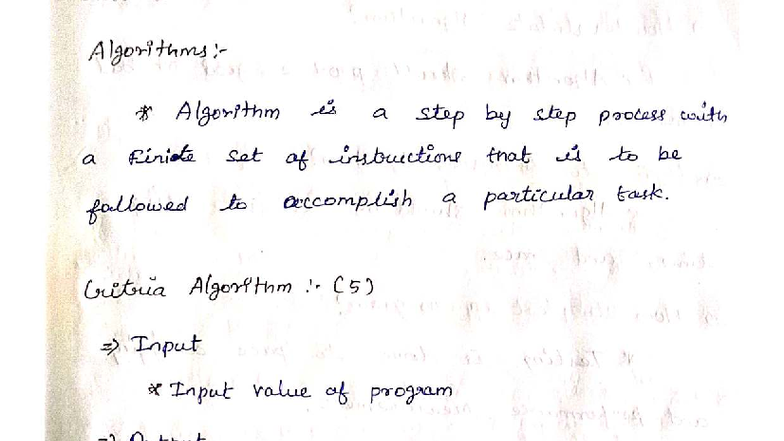 Algorithms :-
* Algorithm is a step by step process with
a finite set of instructions that is to be
followed to accomplish a particular task.
Critria Algorithm :- (5)
=> Input
* Input value of program
=> Output